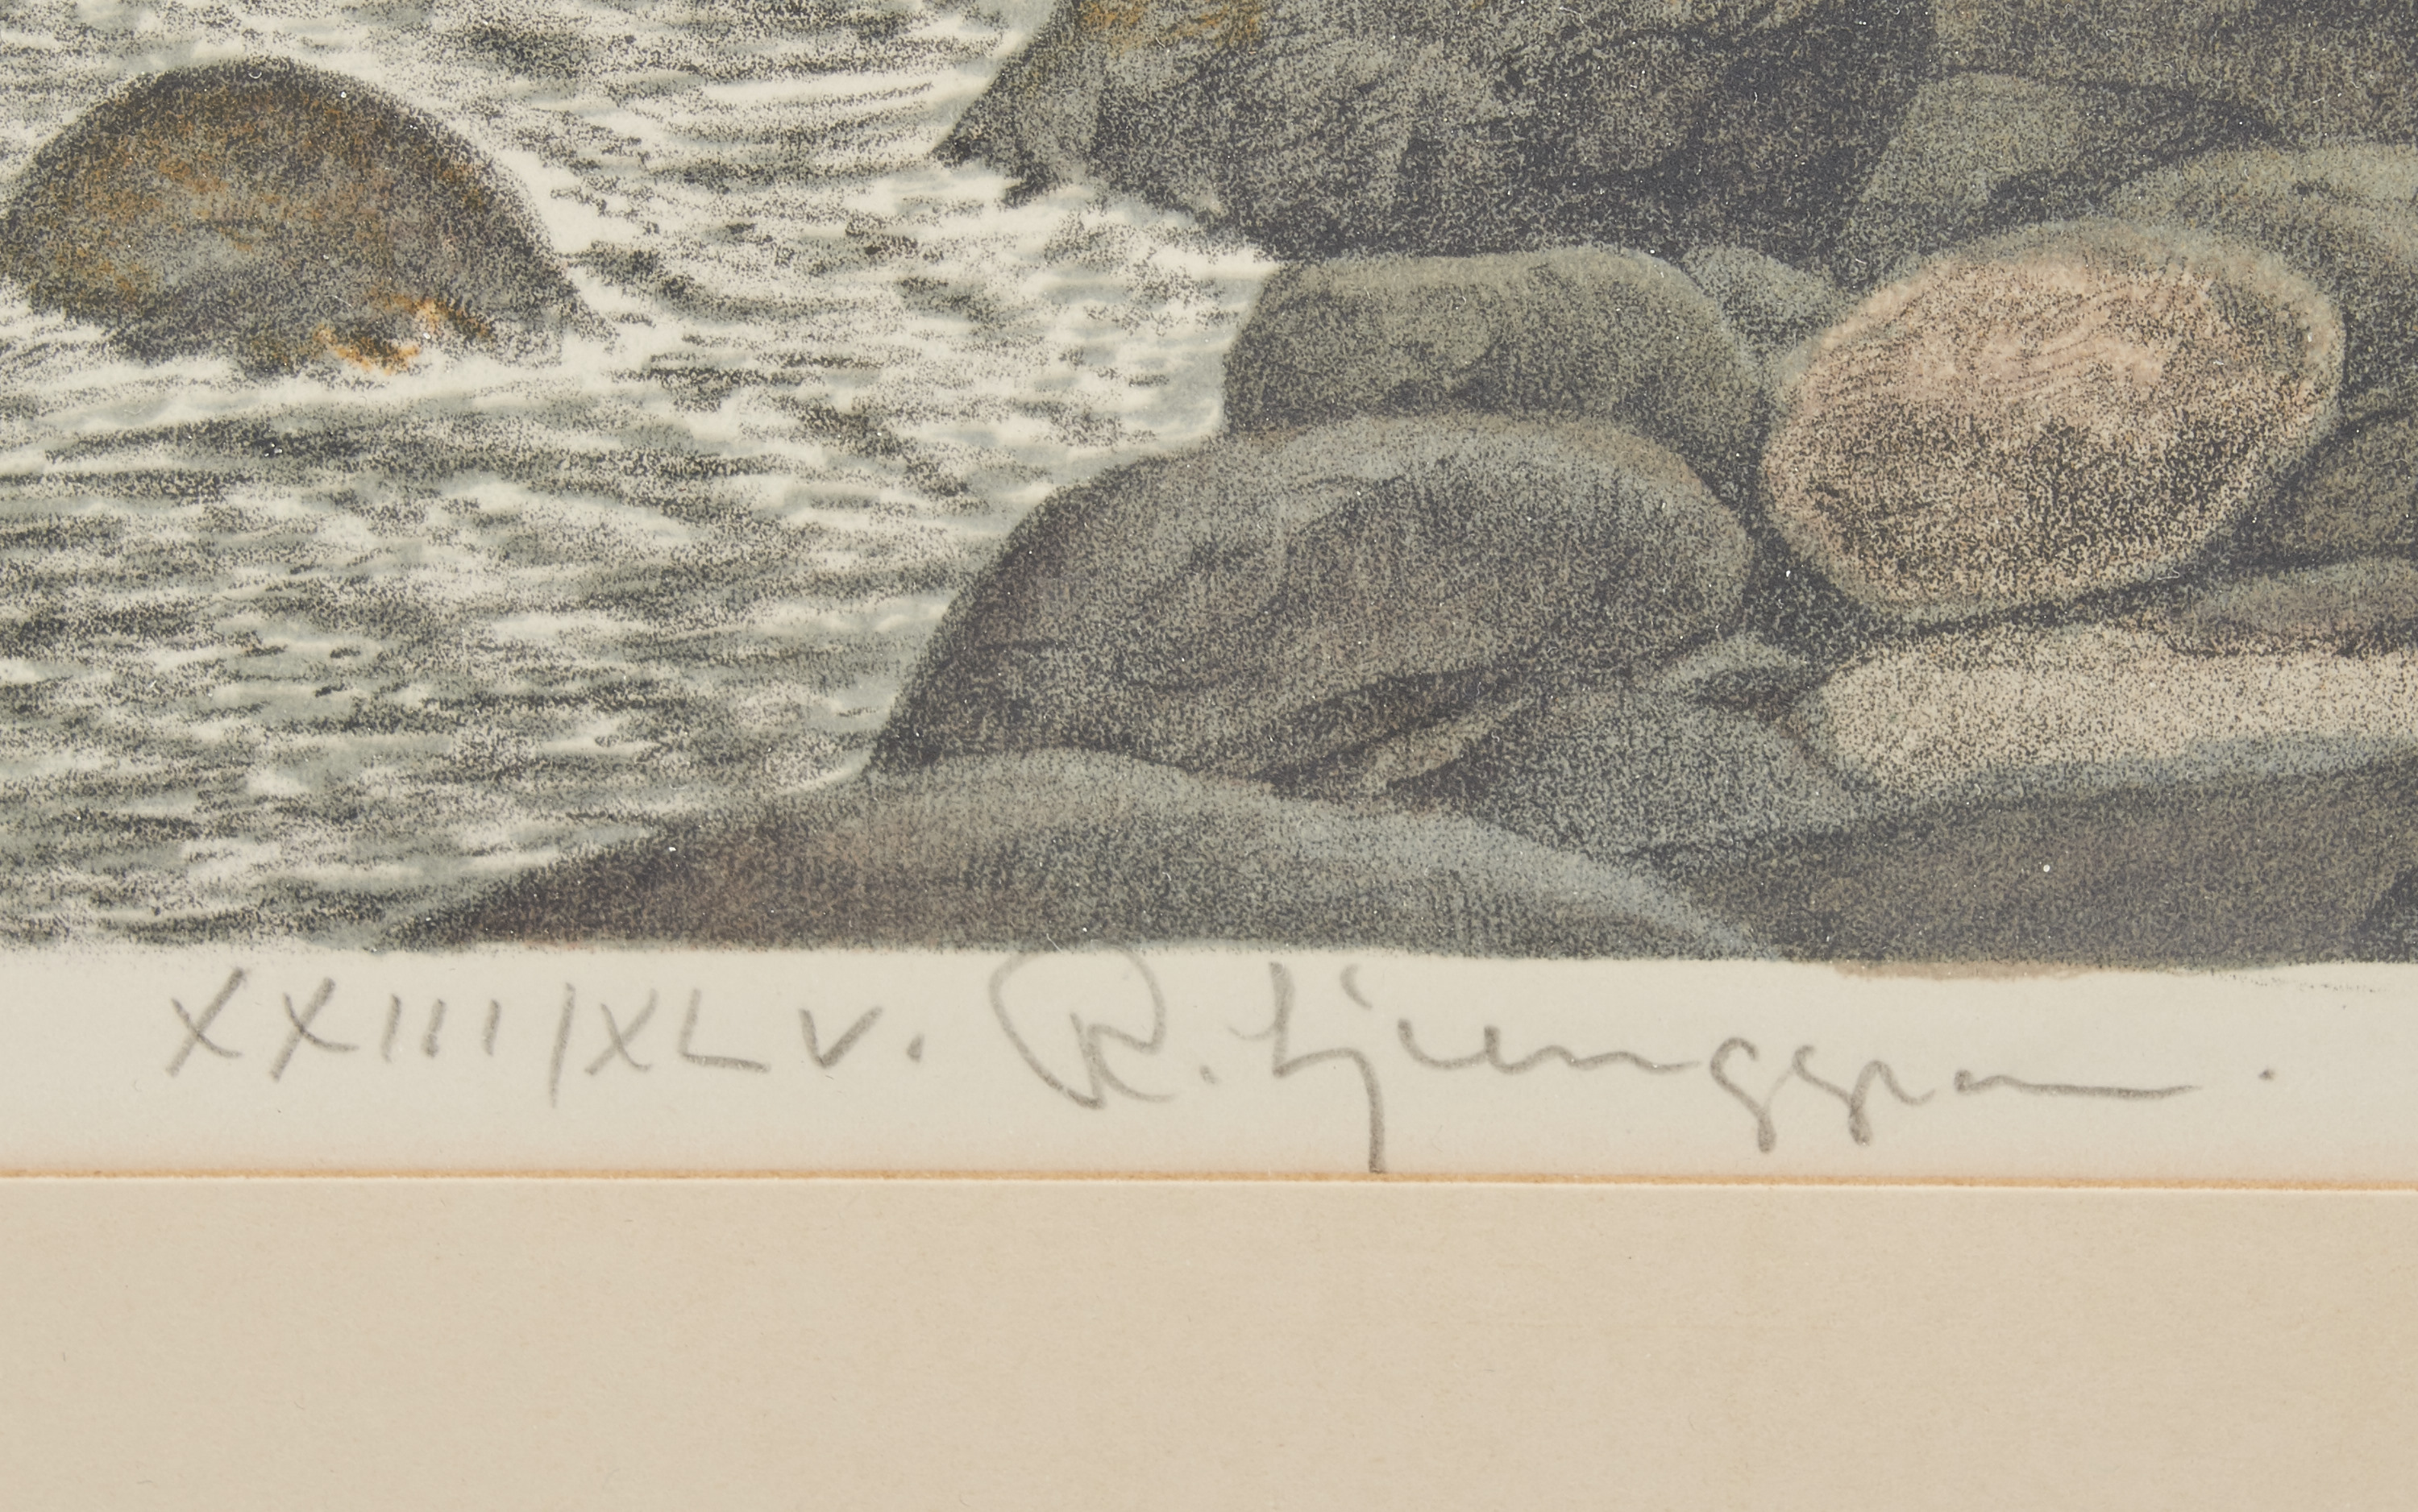 XXIII/XLV. R. Ljunggren.